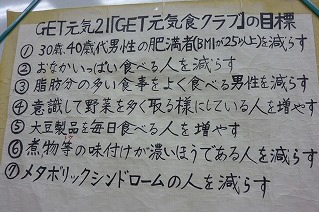 GET元気21『GET元気食クラブ』の目標
① 30歳、40歳代男性の肥満者(BMIが25以上)を減らす
② おなかいっぱい食べる人を減らす
③ 脂肪分の多い食事をよく食べる男性を減らす
④ 意識して野菜を多く取る様にしている人を増やす
⑤ 大豆製品を毎日食べる人を増やす
⑥ 煮物等の味付けが濃いほうである人を減らす
⑦ メタボリックシンドロームの人を減らす